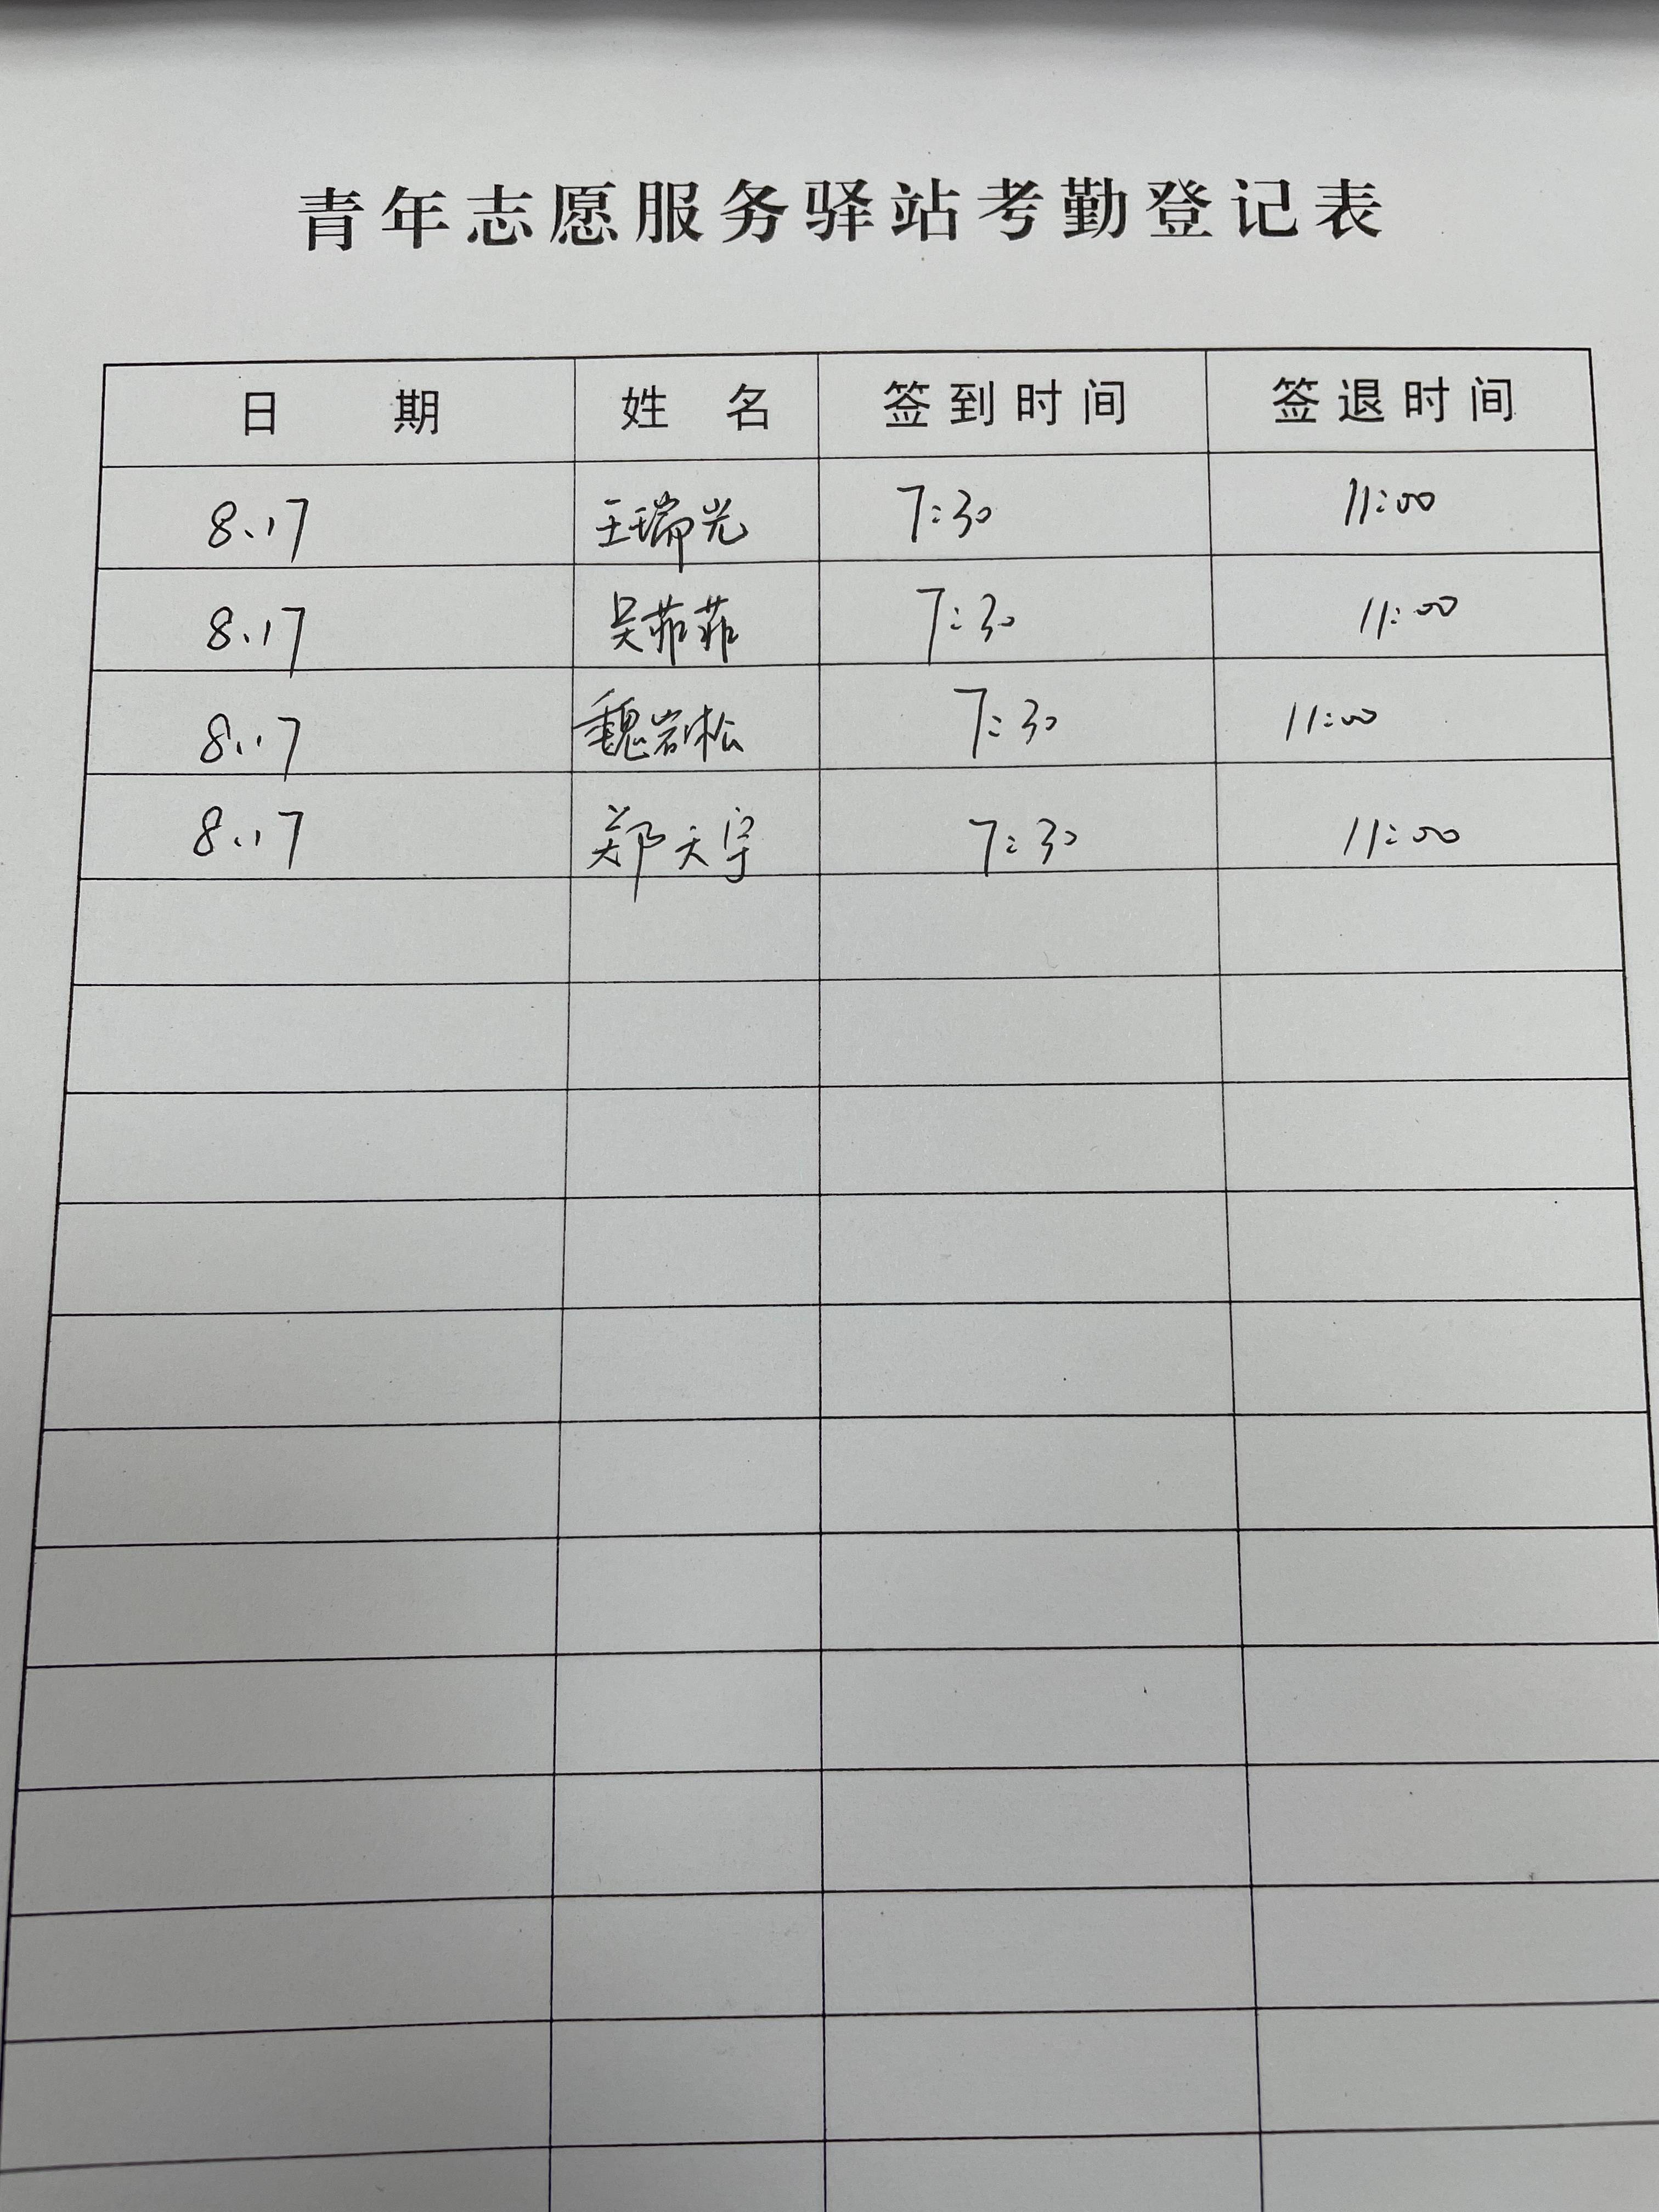 青年志愿服务驿站考勤登记表
日 期 姓 名 签到时间 签退时间
8.17 王瑞光 7:30 11:00
8.17 吴菲菲 7:30 11:00
8.17 魏岩松 7:30 11:00
8.17 郑天宇 7:30 11:00